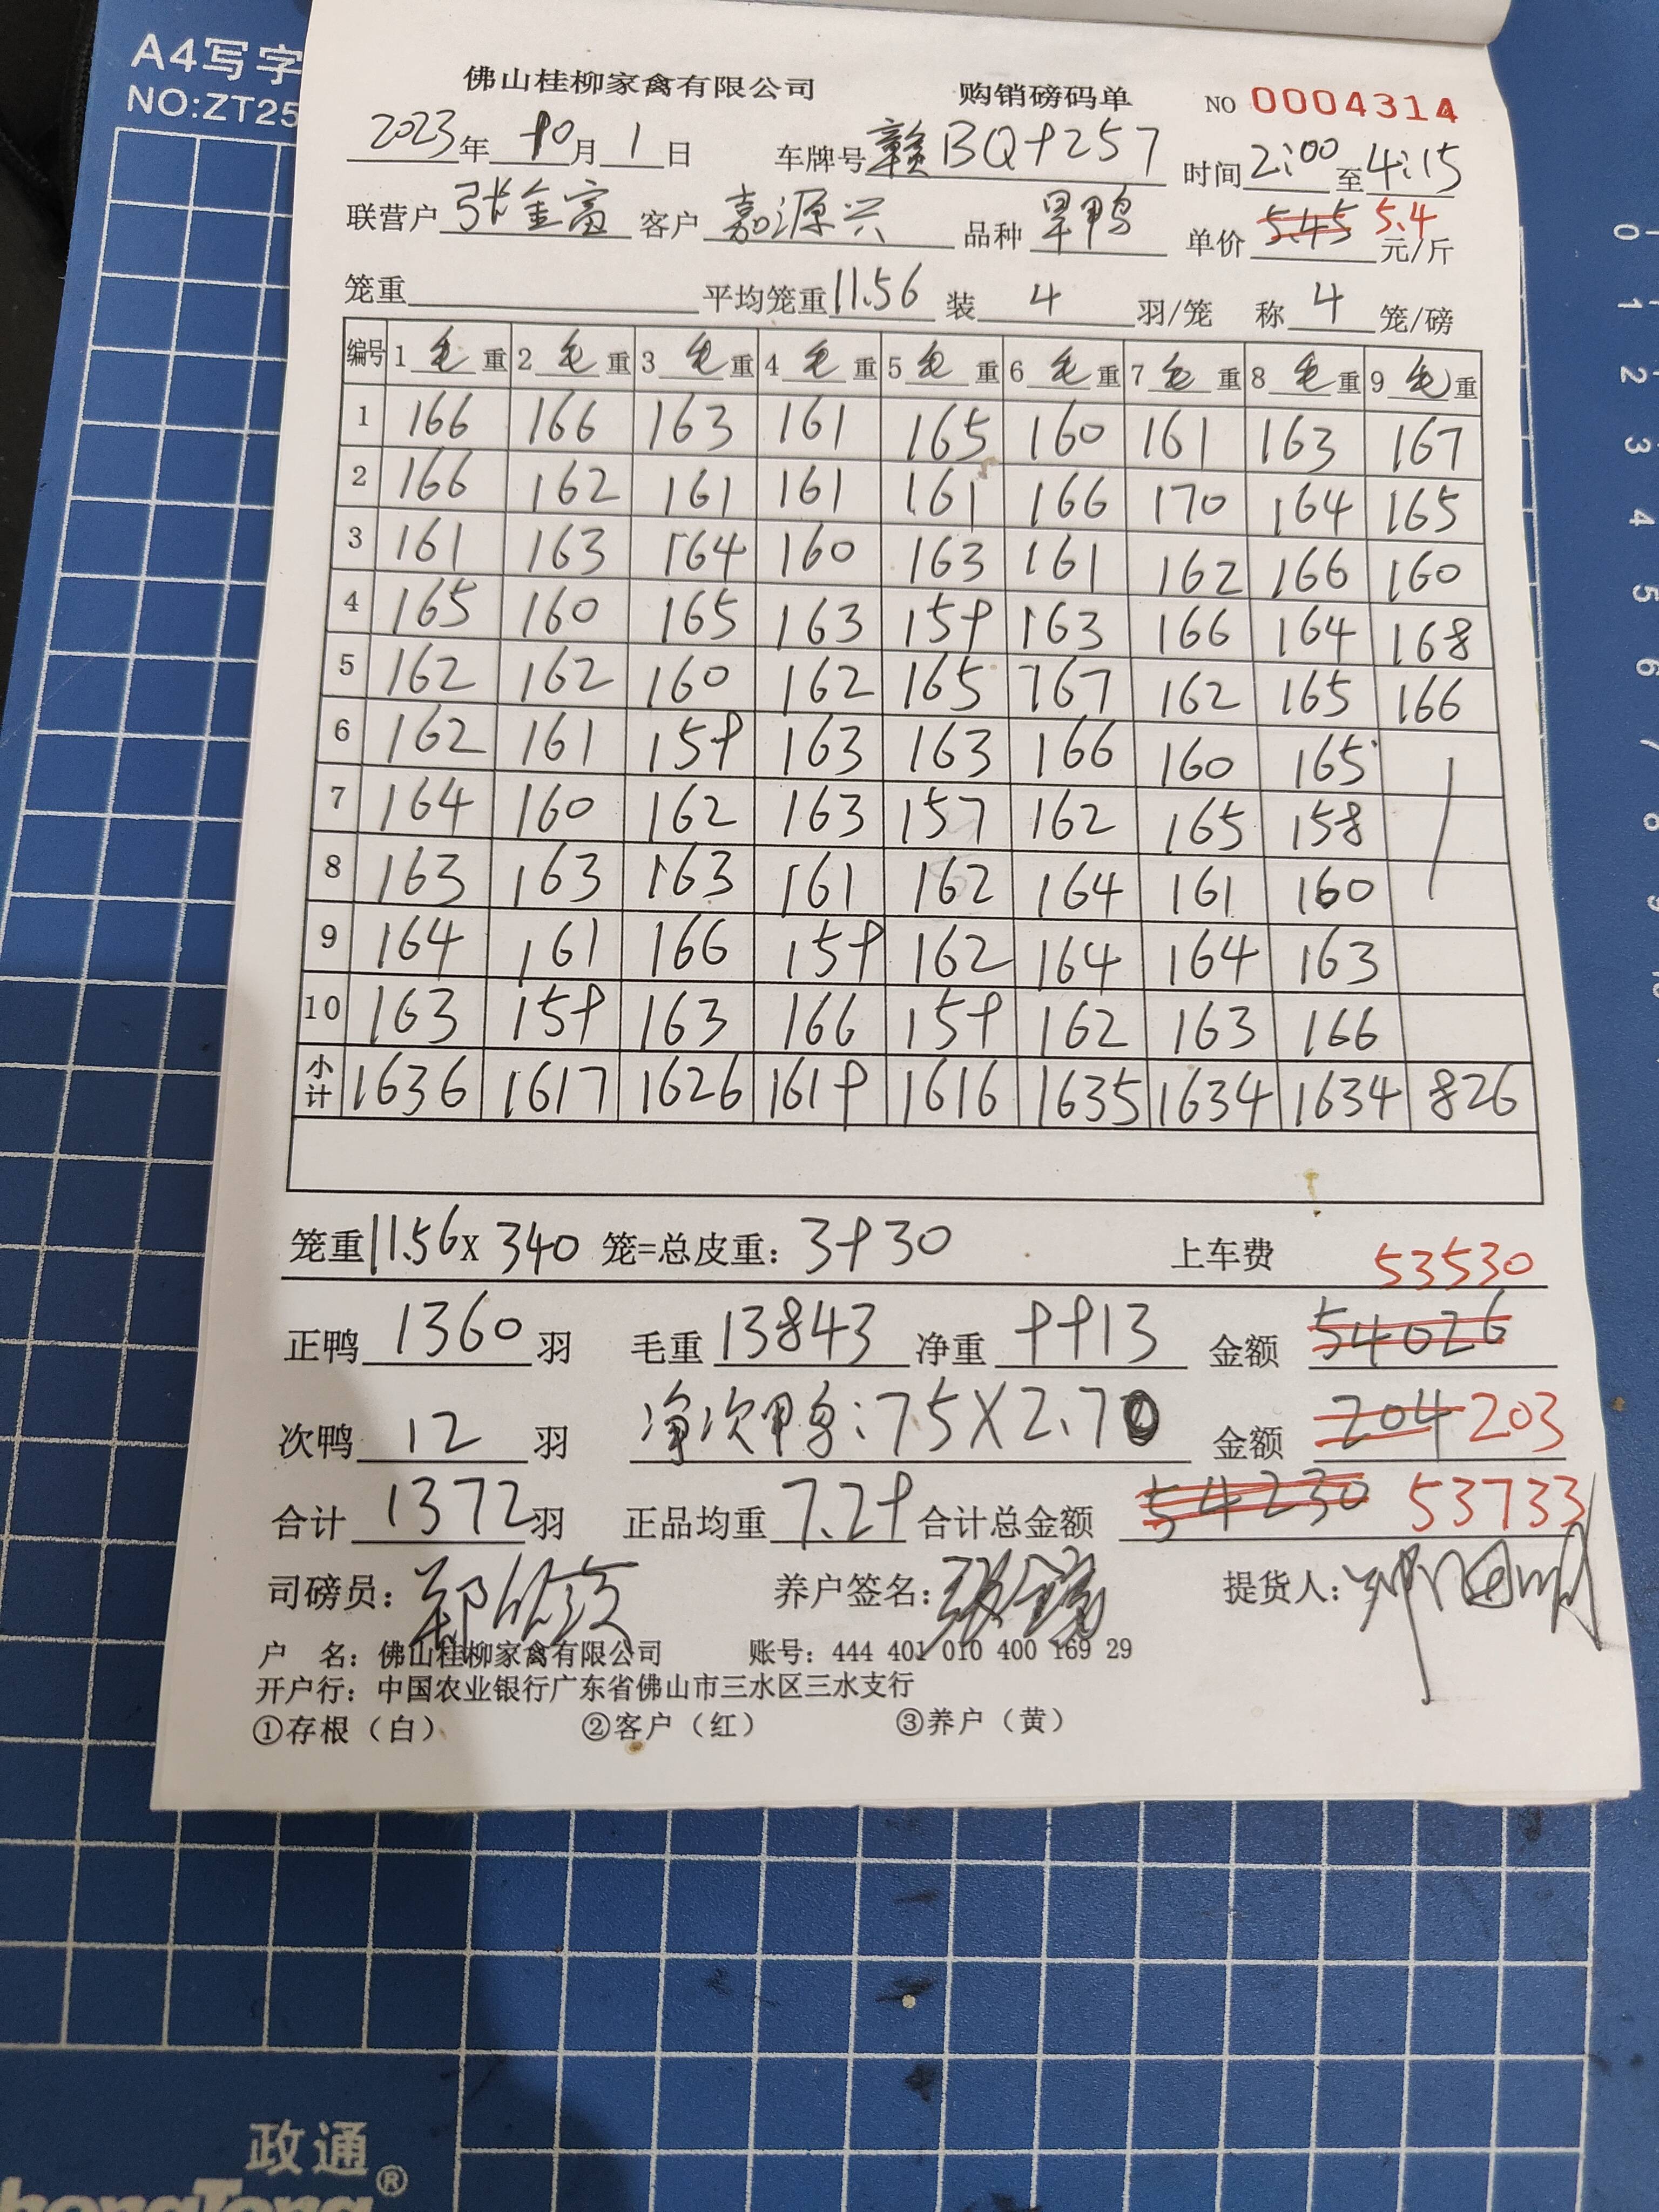 A4写字
NO:ZT25
佛山桂柳家禽有限公司 购销磅码单 NO 0004314
2023年 10月 1日 车牌号 赣BQ9257 时间 2:00 至 4:15
联营户 张金富 客户 嘉源兴 品种 旱鸭 单价 5.45 5.4 元/斤
笼重 平均笼重 11.56 装 4 羽/笼 称 4 笼/磅
编号 1 毛 重 2 毛 重 3 毛 重 4 毛 重 5 毛 重 6 毛 重 7 毛 重 8 毛 重 9 毛 重
1 166 166 163 161 165 160 161 163 167
2 166 162 161 161 161 166 170 164 165
3 161 163 164 160 163 161 162 166 160
4 165 160 165 163 159 163 166 164 168
5 162 162 160 162 165 167 162 165 166
6 162 161 159 163 163 166 160 165
7 164 160 162 163 157 162 165 158
8 163 163 163 161 162 164 161 160
9 164 161 166 159 162 164 164 163
10 163 159 163 166 159 162 163 166
小计 1636 1617 1626 1619 1616 1635 1634 1634 826
笼重 11.56 x 340 笼=总皮重: 3930 上车费
53530
正鸭 1360 羽 毛重 13843 净重 9913 金额 54026
次鸭 12 羽 净次鸭:75X2.70 金额 204 203
合计 1372 羽 正品均重 7.29 合计总金额 54230 53733
司磅员: 养户签名: 提货人:
户 名: 佛山桂柳家禽有限公司 账号: 444 401 010 400 169 29
开户行: 中国农业银行广东省佛山市三水区三水支行
①存根(白) ②客户(红) ③养户(黄)
0 1 2 3 4 5 6 7 8 9 10
政通®